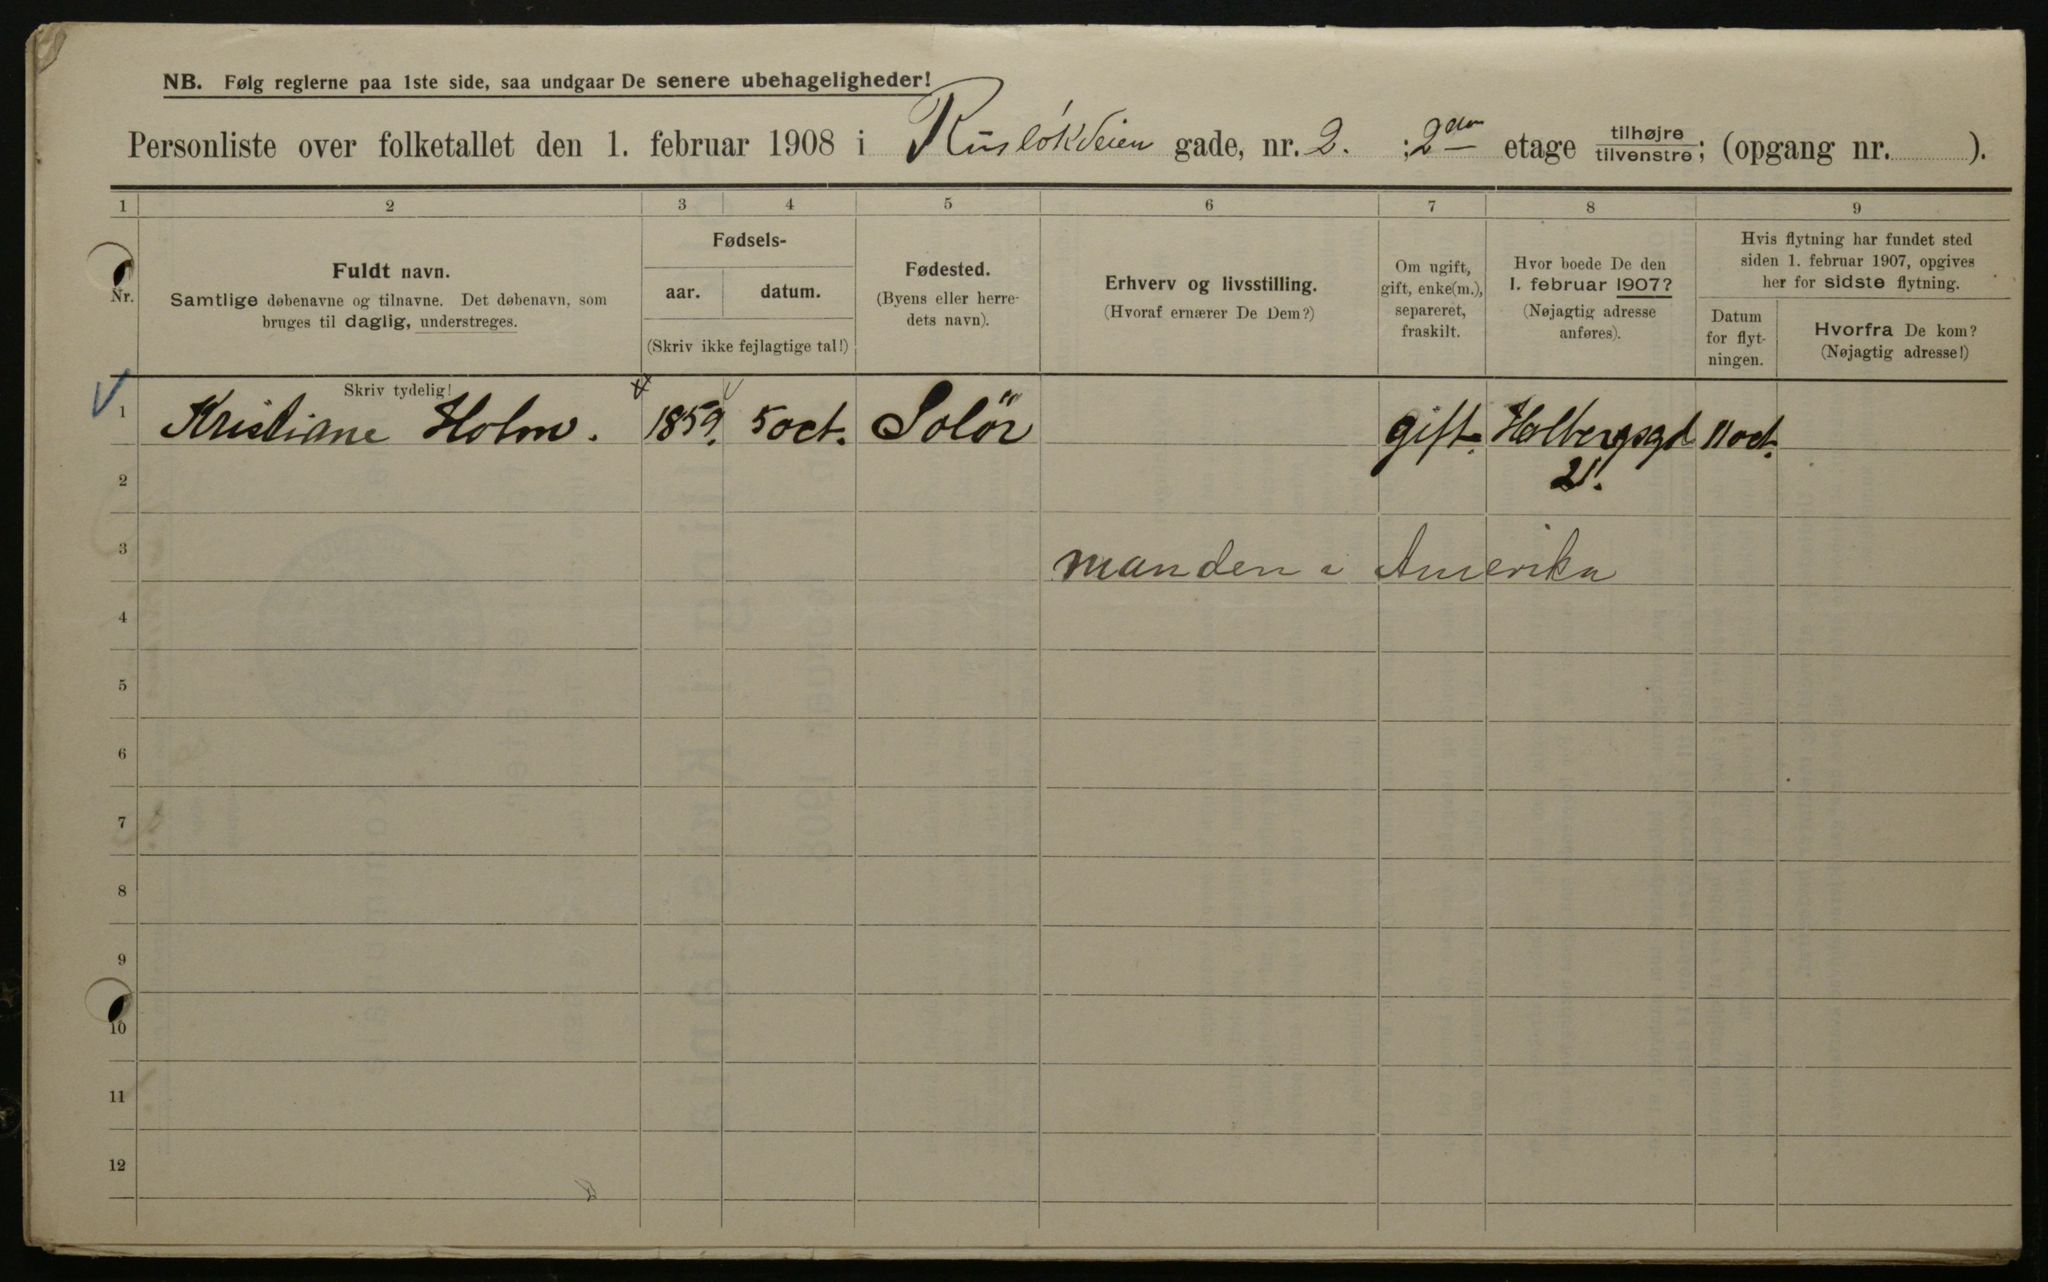 NB. Følg reglerne paa 1ste side, saa undgaar De senere ubehageligheder!
Personliste over folketallet den 1. februar 1908 i Rusløkveien gade, nr. 2. : 2den etage tilhøjre/tilvenstre; (opgang nr. ).
1 2 3 4 5 6 7 8 9
Nr.
Fuldt navn.
Samtlige døbenavne og tilnavne. Det døbenavn, som
bruges til daglig, understreges.
Skriv tydelig!
Fødsels-
aar. datum.
(Skriv ikke fejlagtige tal!)
Fødested.
(Byens eller herre-
dets navn).
Erhverv og livsstilling.
(Hvoraf ernærer De Dem?)
Om ugift,
gift, enke(m.),
separeret,
fraskilt.
Hvor boede De den
1. februar 1907?
(Nøjagtig adresse
anføres).
Hvis flytning har fundet sted
siden 1. februar 1907, opgives
her for sidste flytning.
Datum
for flyt-
ningen.
Hvorfra De kom?
(Nøjagtig adresse!)
1 Kristiane Holm. 1859. 5 oct. Solör gift. Holbergsgd 11 oct.
2 21.
3 manden i Amerika
4
5
6
7
8
9
10
11
12